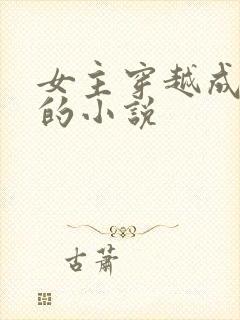 女主穿越成
的小說
古蕭